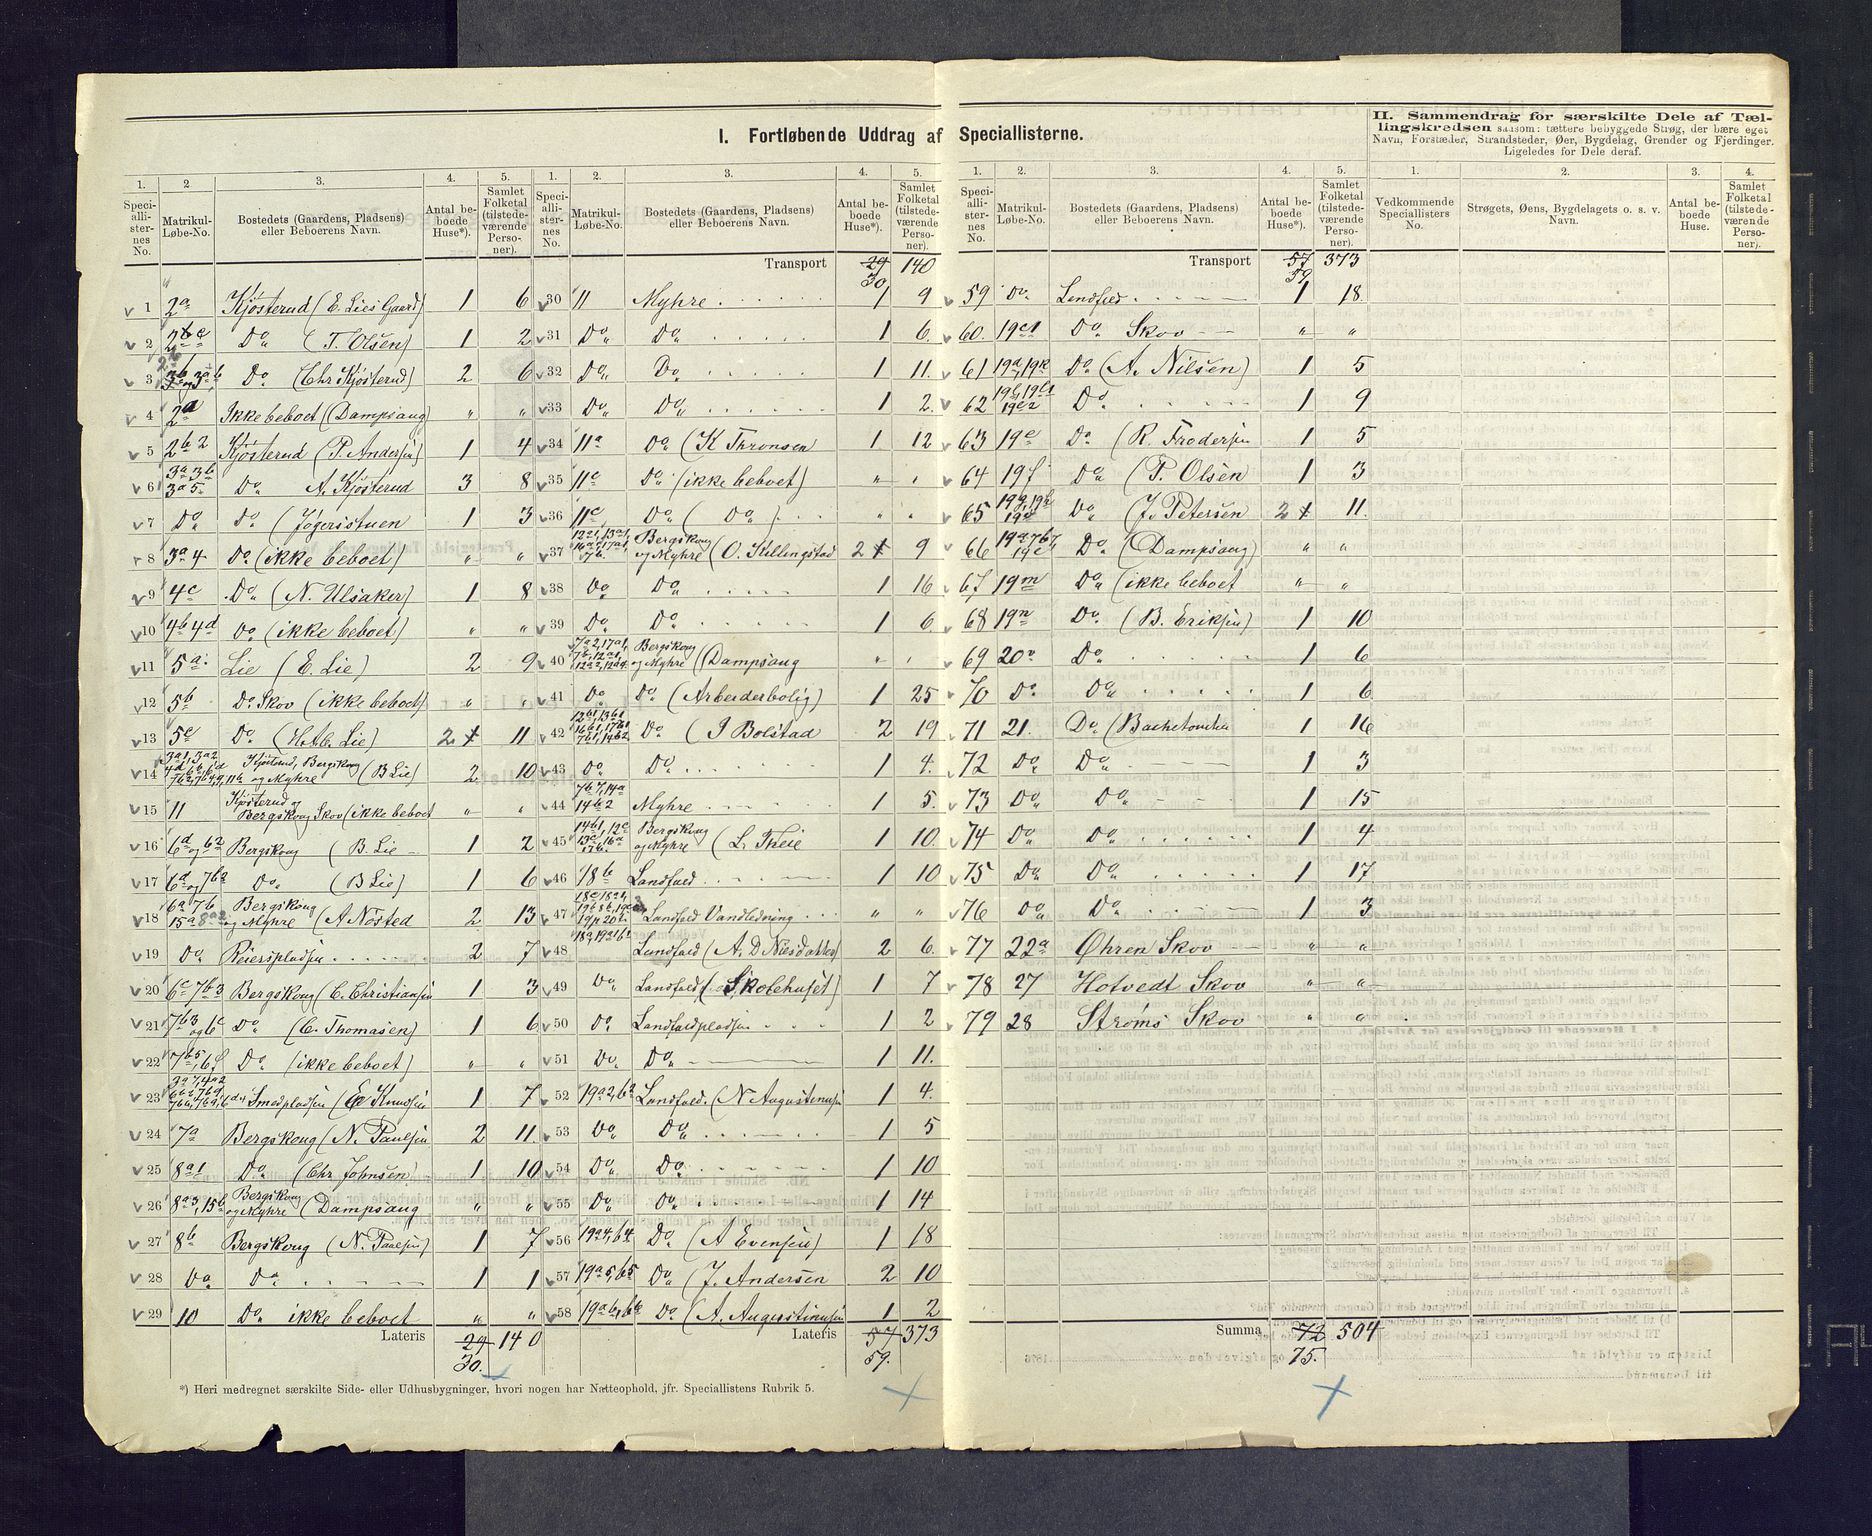 I. Fortløbende Uddrag af Speciallisterne.
II. Sammendrag for særskilte Dele af Tæl-
lingskredsen saasom: tættere bebyggede Strøg, der bære eget
Navn, Forstæder, Strandsteder, Øer, Bygdelag, Grender og Fjerdinger.
Ligeledes for Dele deraf.
1. 2. 3. 4. 5.
Speciallisternes No. Matrikul-Løbe-No. Bostedets (Gaardens, Pladsens) eller Beboerens Navn. Antal beboede Huse*). Samlet Folketal (tilstedeværende Personer).
1 2a Kjösterud (E. Lies Gaard) 1 6
2 Do (T. Olsen) 1 2
3 Do (Chr Kjösterud) 2 6
4 2a Ikke beboet (Dampsaug) " "
5 2b2 Kjösterud (P. Andersen) 1 4
6 3a 3b 3a5 Do A. Kjösterud 3 8
7 Do Do (Jögeristuen 1 3
8 3a4 Do (ikke beboet) " "
9 4c Do (N. Ulsaker) 1 8
10 4b 4d Do (ikke beboet) " "
11 5a Lie (E. Lie) 2 9
12 5b Do Skov (ikke beboet) " "
13 5c Do Lie) 2 11
14 Kjösterud, Bergskoug og Myhre (B Lie) 2 10
15 11 Kjösterud og Bergskoug Skov (ikke beboet " "
16 6d og 6 Bergskoug (B. Lie 1 2
17 6d og 7b2 Do (B Lie) 1 6
18 6a 7b 15a 8a2 Bergskoug og Myhre (A Nösted 2 13
19 Do Reierspladsen 2 7
20 6c 7b3 Bergskoug (C. Christiansen 1 3
21 7b3 og 6c Do (C. Thomasen) 1 6
22 7b5, 6f Do (ikke beboet) " "
23 Smedpladsen (E Knudsen 1 7
24 7a Bergskoug (N. Paulsen 2 11
25 8a1 Do (Chr Johnsen) 1 10
26 8a3, 15b Bergskoug og Myhre (Dampsaug " "
27 8b Bergskoug (N. Paulsen) 1 7
28 Do Do 1 1
29 10 Do ikke beboet " "
Lateris 29 140
30.
*) Heri medregnet særskilte Side- eller Udhusbygninger, hvori nogen har Natteophold, jfr. Speciallistens Rubrik 5.
1. 2. 3. 4. 5.
Speciallisternes No. Matrikul-Løbe-No. Bostedets (Gaardens, Pladsens) eller Beboerens Navn. Antal beboede Huse*). Samlet Folketal (tilstedeværende Personer).
Transport 29 140
30
30 11 Myhre 1 9
31 Do Do 1 6
32 Do Do 1 11
33 Do Do 1 2
34 11a Do (K Thronsen 1 12
35 11c Do (ikke beboet) " "
36 11c Do (Do) " "
37 Bergskoug og Myhre (O. Killingstad 2 9
38 Do Do 1 16
39 Do Do 1 6
40 Bergskoug og Myhre (Dampsaug " "
41 Do Do (Arbeiderbolig) 1 25
42 Do (J Bolstad 2 19
43 Do Do 1 4
44 7b7, 14a 14b2 Myhre 1 5
45 Bergskoug og Myhre (L. Theie 1 10
46 18b Landfald 1 10
47 Landfald Vandledning " "
48 Landfald (A. D 2 6
49 Do Landfald (Skolehuset) 1 7
50 Do Landfaldpladsen 1 2
51 Do Do 1 11
52 19a2, b2 Landfald (N Augustinusen 1 4
53 Do Do 1 5
54 Do Do 1 10
55 Do Do 1 14
56 19a4, b4 Do (A Evensen) 1 18
57 19a5, b5 Do (J. Andersen 2 10
58 19a6, b6 Do (A. Augustinusen 1 2
Lateris 57 373
59.
1. 2. 3. 4. 5.
Speciallisternes No. Matrikul-Løbe-No. Bostedets (Gaardens, Pladsens) eller Beboerens Navn. Antal beboede Huse*). Samlet Folketal (tilstedeværende Personer).
Transport 57 373
59
59 Do Landfald 1 18
60. 19c1 Do Skov " "
61 19a, 19k Do (A. Nilsen) 1 5
62 Do 1 9
63 19e Do (R. Frodersen 1 5
64 19f Do (P. Olsen 1 3
65 Do (J. Petersen 2 11
66 Do (Dampsaug) " "
67 19m Do (ikke beboet " "
68 19n Do (B. Eriksen) 1 10
69 20 Do 1 6
70 Do Do 1 6
71 21. Do 1 16
72 Do Do 1 3
73 Do Do 1 15
74 Do Do 1 4
75 Do Do 1 17
76 Do Do 1 3
77 22a Øhren Skov " "
78 27 Hotvedt Skov " "
79 28 Ströms Skov " "
Summa 72 504
75.
1. 2. 3. 4.
Vedkommende Speciallisters No. Strøgets, Øens, Bygdelagets o. s. v. Navn. Antal beboede Huse. Samlet Folketal (tilstedeværende Personer).